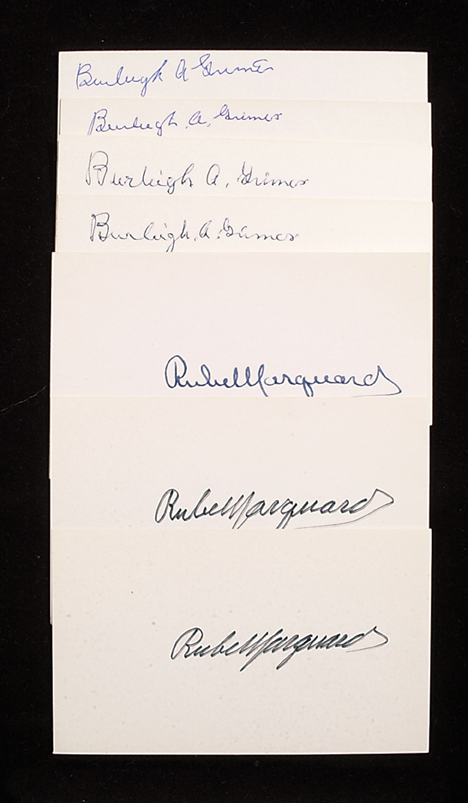 Burleigh A Grimes
Burleigh. A. Grimes
Burleigh A. Grimes
Burleigh. A. Grimes
Rube Marquard
Rube Marquard
Rube Marquard